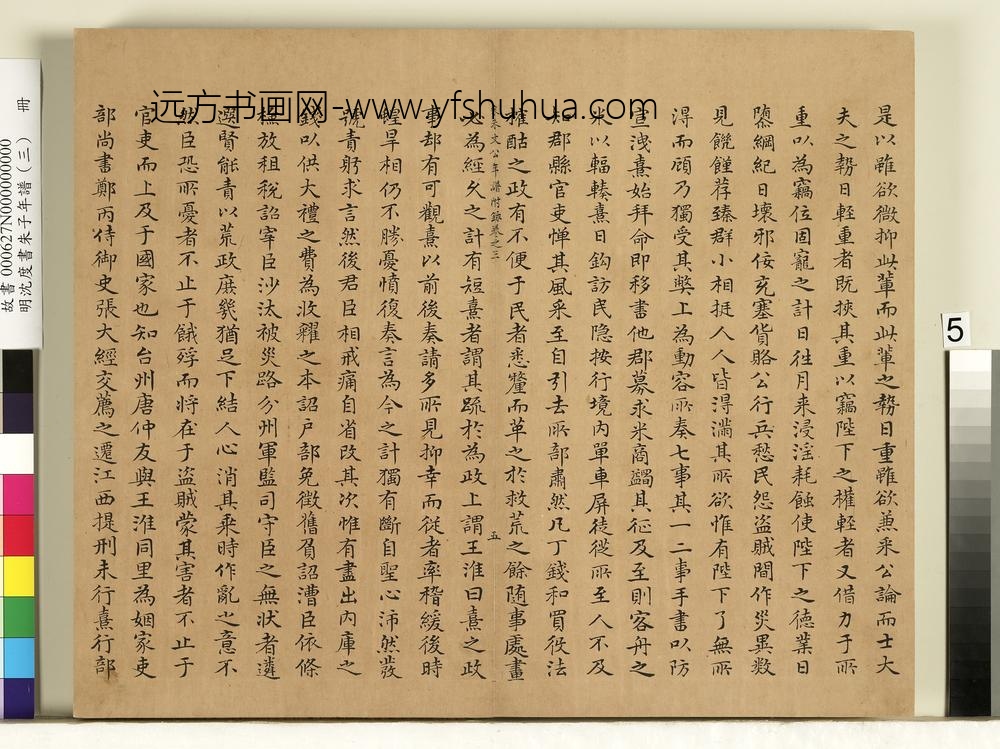 是以雖欲微抑此輩而此輩之勢日重雖欲兼采公論而士大
夫之勢日輕重者既挾其重以竊陛下之權輕者又借力于所
重以為竊位固寵之計日往月来浸淫耗蝕使陛下之德業日
隳綱紀日壞邪佞充塞貨賂公行兵愁民怨盜賊間作災異数
見饑饉荐臻群小相挺人人皆得滿其所欲惟有陛下了無所
得而顧乃獨受其弊上為動容所奏七事其一二事手書以防
宣洩熹始拜命即移書他郡募求米商蠲其征及至則客舟之
米以輻輳熹日鈎訪民隐按行境内單車屏徒從所至人不及
知郡縣官吏憚其風采至自引去所部肅然凡丁錢和買役法
榷酤之政有不便于民者悉釐而革之於救荒之餘随事處畫
朱文公年譜附錄卷之三
五
必為經久之計有短熹者謂其疏於為政上謂王淮曰熹之政
事却有可觀熹以前後奏請多所見抑幸而従者率稽緩後時
蝗旱相仍不勝憂憤復奏言為今之計獨有斷自聖心沛然發
號責躬求言然後君臣相戒痛自省改其次惟有盡出内庫之
錢以供大禮之費為收糴之本詔户部免徵舊負詔漕臣依條
檢放租稅詔宰臣沙汰被災路分州軍監司守臣之無状者遴
選賢能責以荒政庶幾猶足下結人心消其乘時作亂之意不
然臣恐所憂者不止于餓殍而将在于盜賊蒙其害者不止于
官吏而上及于國家也知台州唐仲友與王淮同里為姻家吏
部尚書鄭丙侍御史張大經交薦之遷江西提刑未行熹行部
远方书画网-www.yfshuhua.com
故書 000627N000000000
冊
明沈度書朱子年譜(三)
5